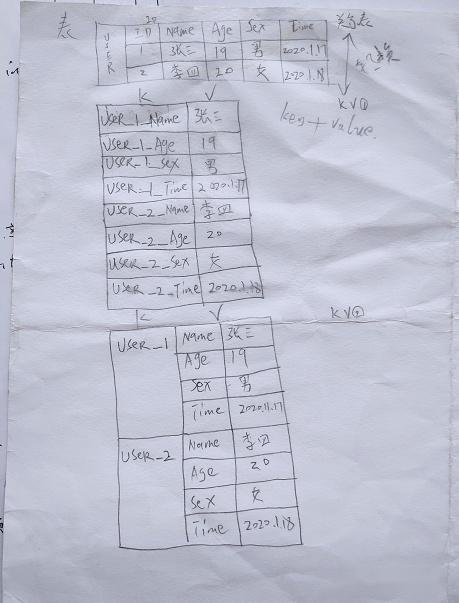 表
USER ID Name Age Sex Time
1 张三 19 男 2020.1.17
2 李四 20 女 2020.1.18
K V
KV①
key+value.
USER_1_Name 张三
USER_1_Age 19
USER_1_Sex 男
USER_1_Time 2020.1.17
USER_2_Name 李四
USER_2_Age 20
USER_2_Sex 女
USER_2_Time 2020.1.18
K V
KV②
USER_1 Name 张三
Age 19
Sex 男
Time 2020.1.17
USER_2 Name 李四
Age 20
Sex 女
Time 2020.1.18